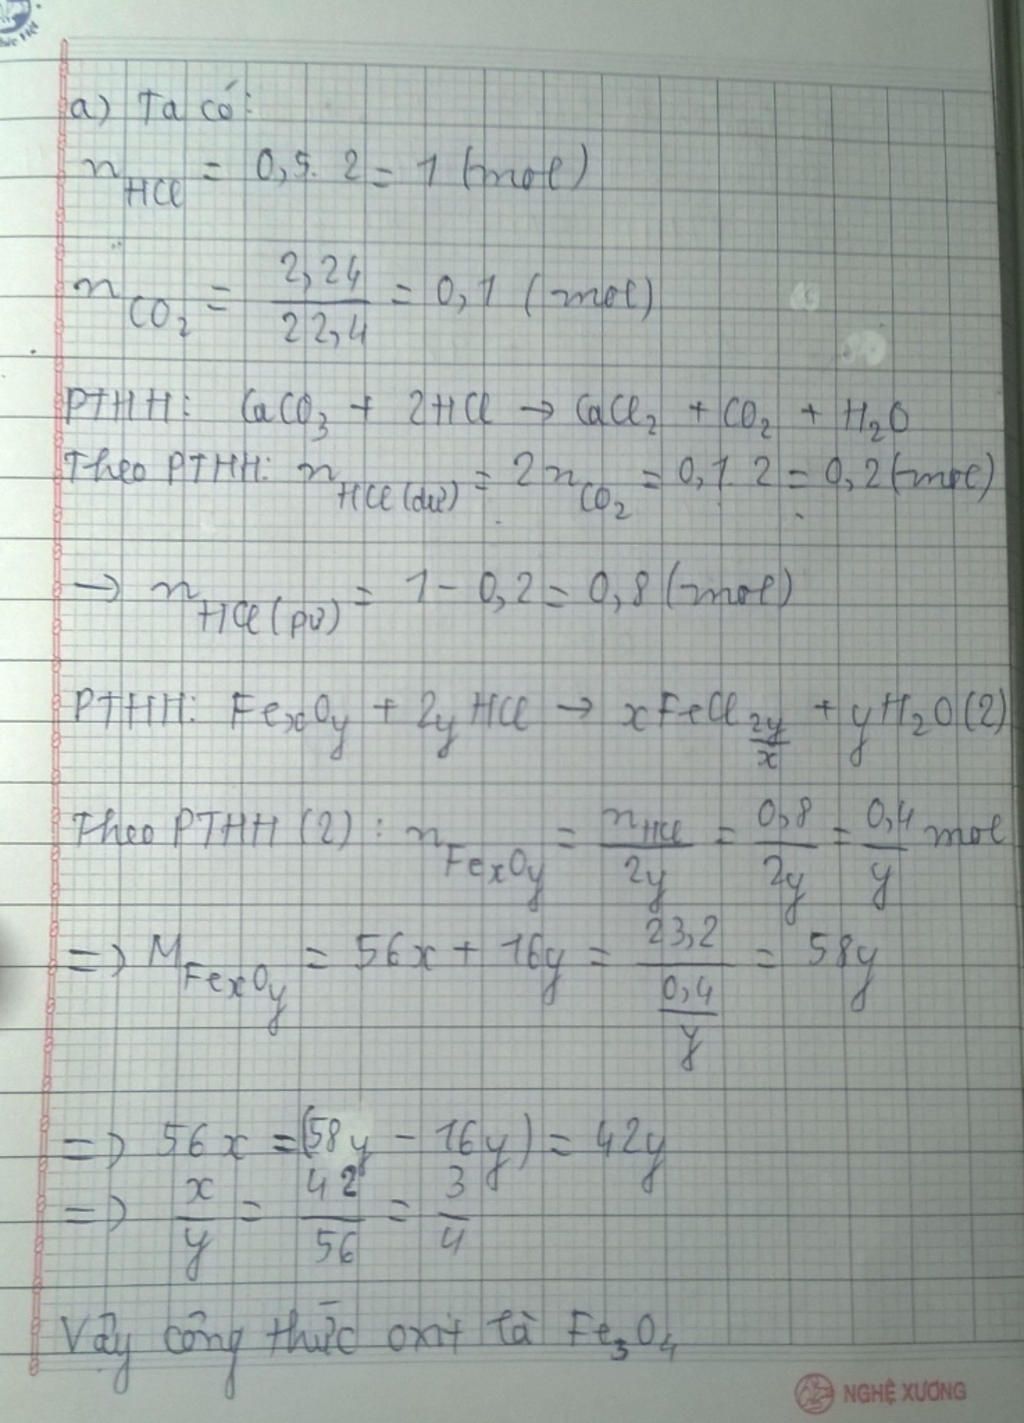 a) Ta có:
n HCl = 0,5. 2 = 1 (mol)
n CO2 = 2,24 / 22,4 = 0,1 (mol)
PTHH: CaCO3 + 2HCl → CaCl2 + CO2 + H2O
Theo PTHH: n HCl (dư) = 2 n CO2 = 0,1. 2 = 0,2 (mol)
→ n HCl (pư) = 1 - 0,2 = 0,8 (mol)
PTHH: FexOy + 2y HCl → x FeCl 2y/x + y H2O (2)
Theo PTHH (2): n FexOy = n HCl / 2y = 0,8 / 2y = 0,4 / y mol
=> M FexOy = 56x + 16y = 23,2 / (0,4 / y) = 58y
=> 56x = (58y - 16y) = 42y
=> x / y = 42 / 56 = 3 / 4
Vậy công thức oxit là Fe3O4
NGHỆ XƯƠNG